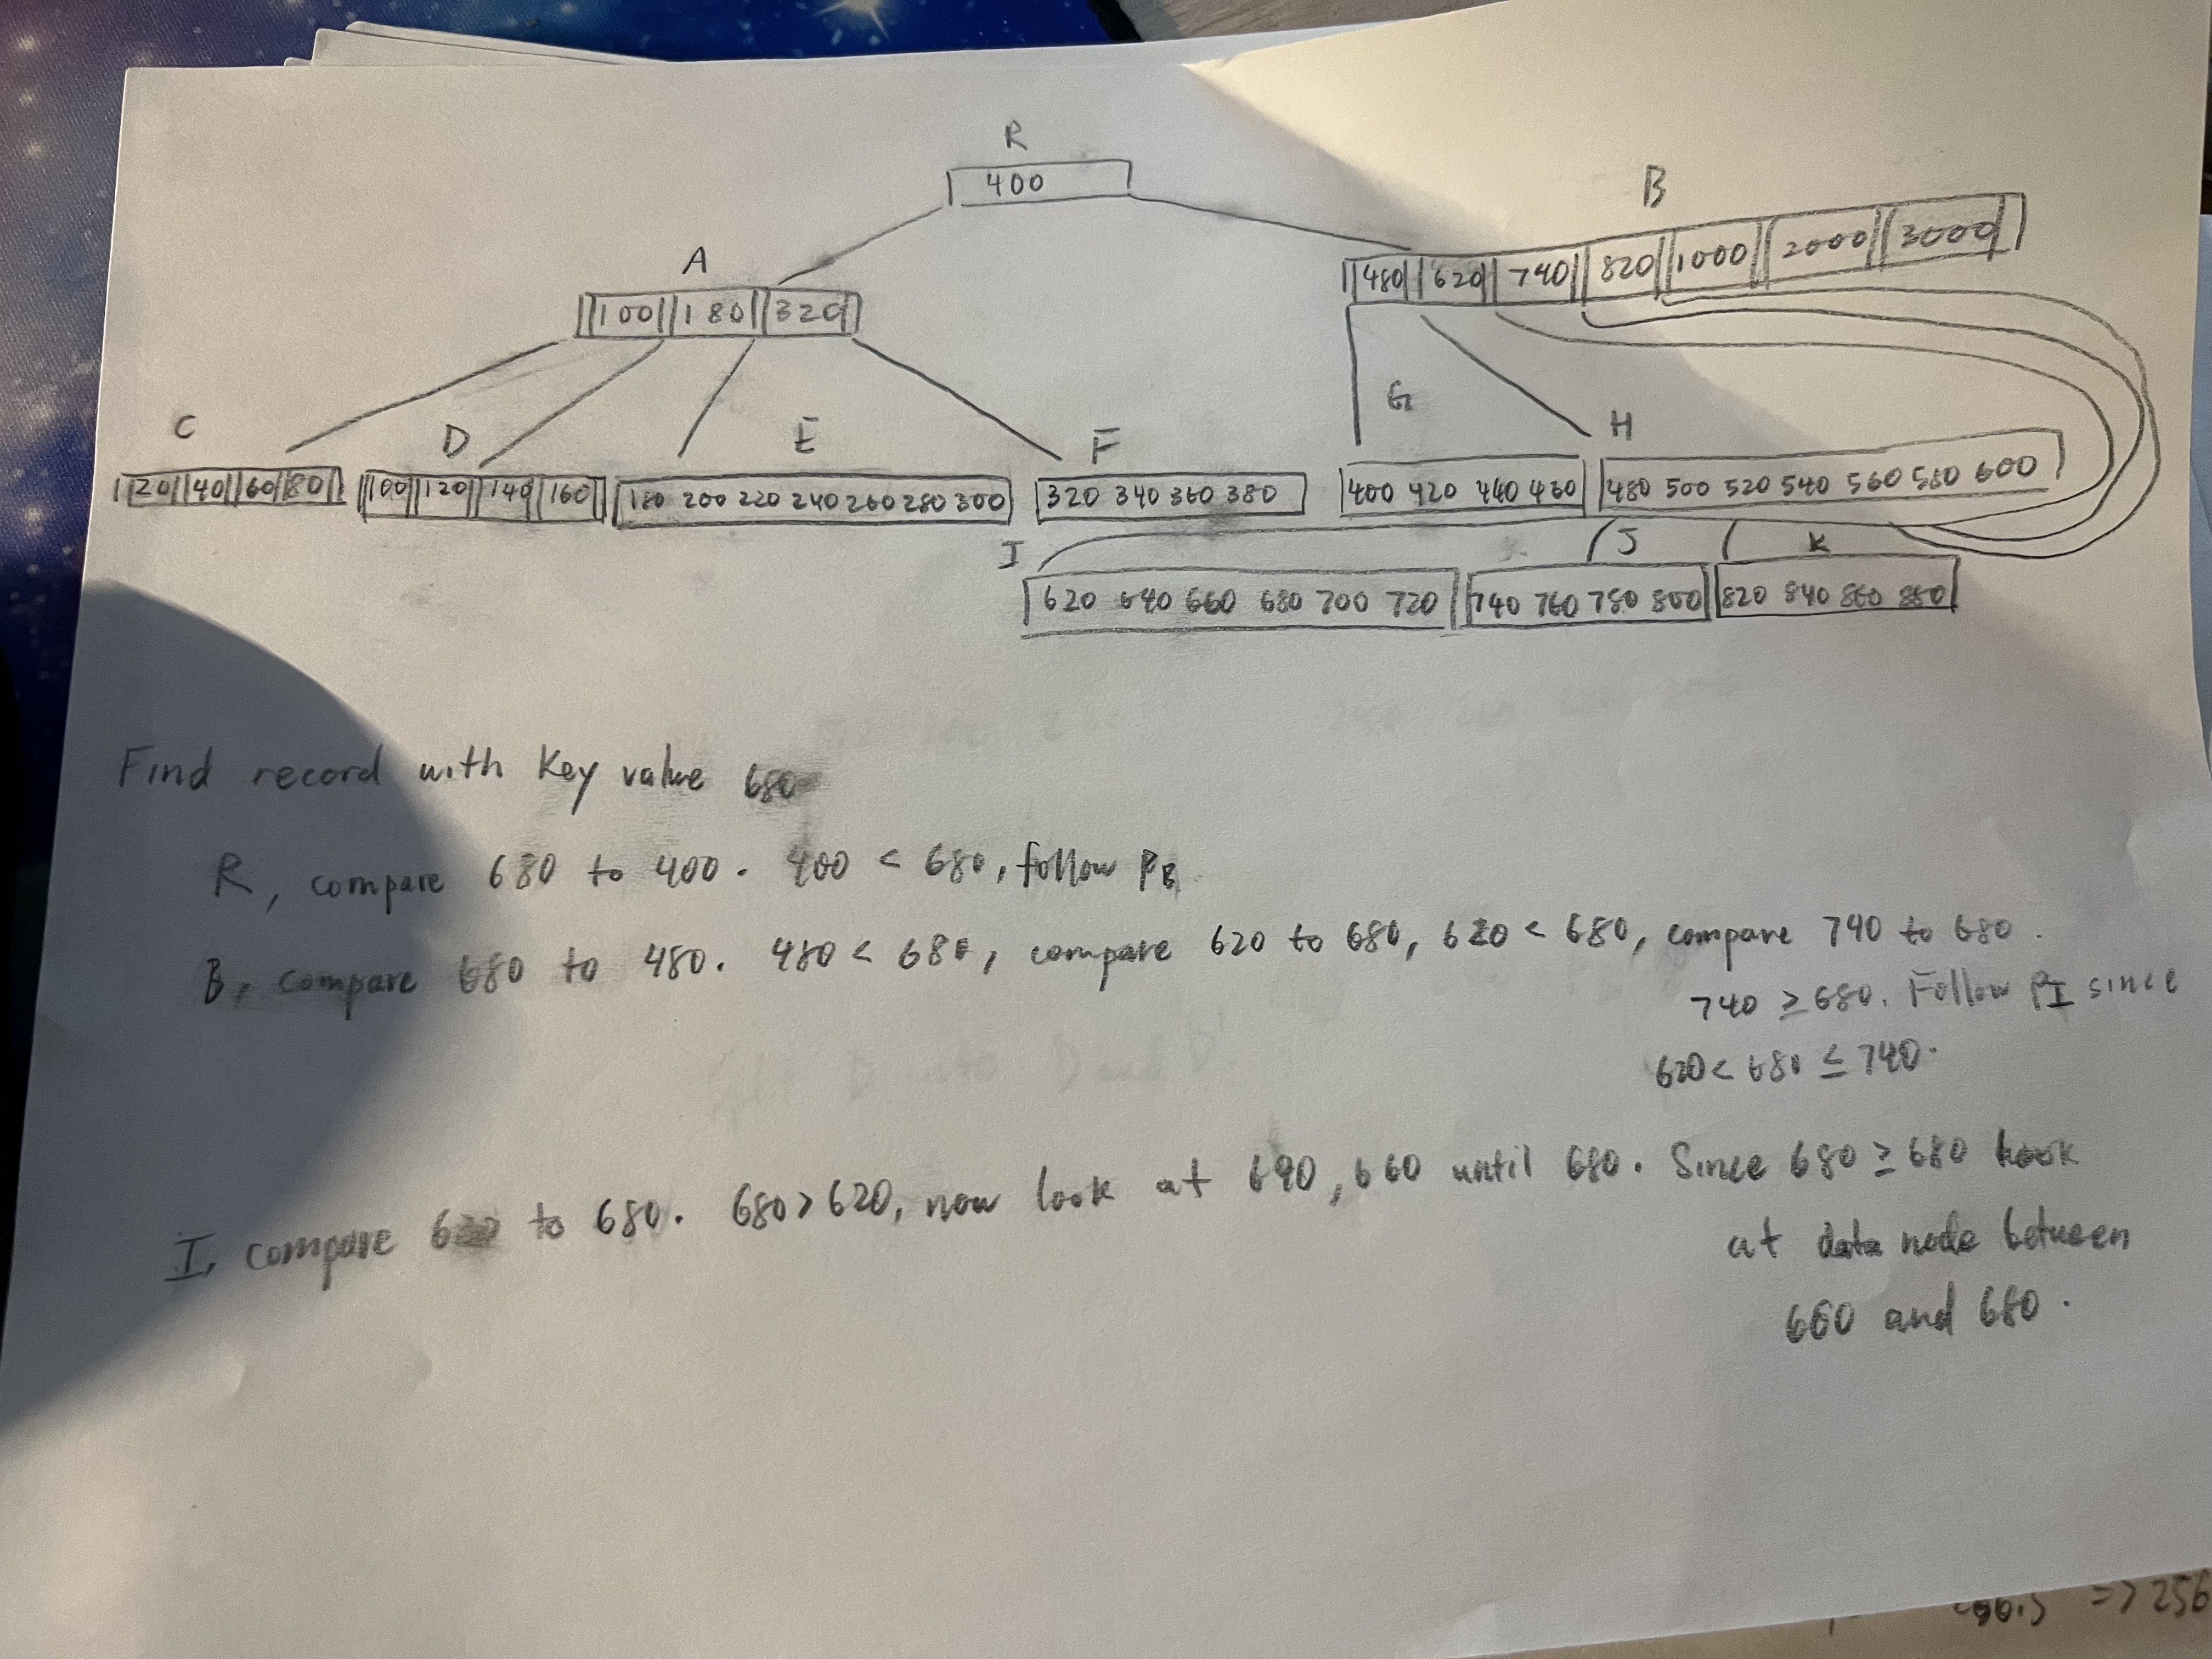 R
400
B
480 620 740 820 1000 2000 3000
A
100 180 320
G
C D E F H
20 40 60 80 100 120 140 160 180 200 220 240 260 280 300 320 340 360 380 400 420 440 460 480 500 520 540 560 580 600
I J K
620 640 660 680 700 720 740 760 780 800 820 840 860 880
Find record with key value 680
R, compare 680 to 400. 400 < 680, follow PB
B, compare 680 to 480. 480 < 680, compare 620 to 680, 620 < 680, compare 740 to 680.
740 ≥ 680. Follow PI since
620 < 680 ≤ 740.
I, compare 620 to 680. 680 > 620, now look at 640, 660 until 680. Since 680 ≥ 680 look
at data node between
660 and 680.
=> 256